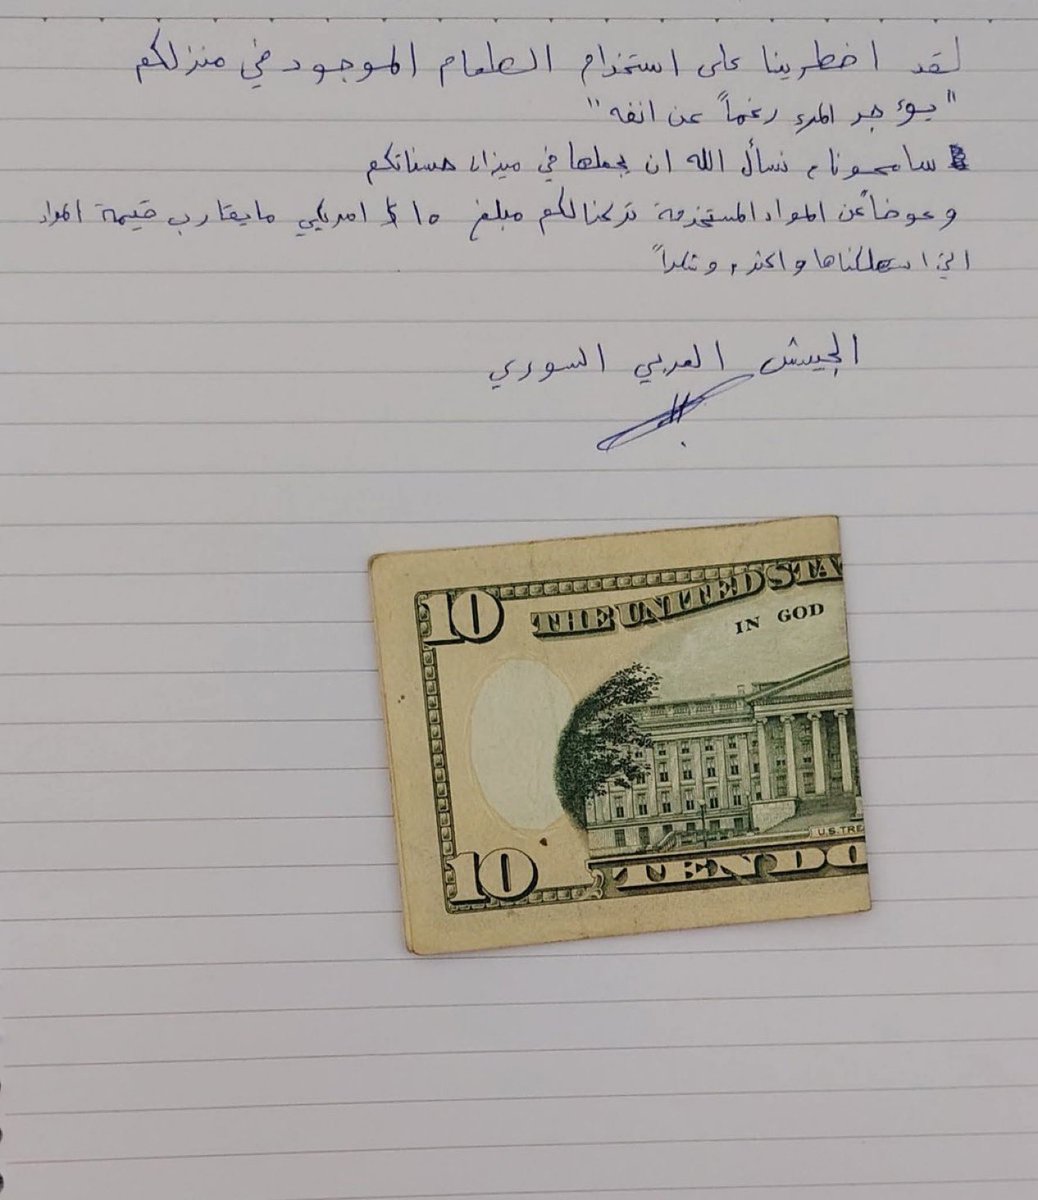 لقد اضطرينا على استخدام الطعام الموجود في منزلكم
"يؤجر المرء رغماً عن انفه"
سامحونا، نسأل الله ان يجعلها في ميزان حسناتكم
وعوضاً عن المواد المستخدمة تركنا لكم مبلغ ١٠ $ امريكي ما يقارب قيمة المواد
التي استهلكناها واكثر، وشكراً
الجيش العربي السوري
10 THE UNITED STA
IN GOD
U.S. TRE
10 TEN DO